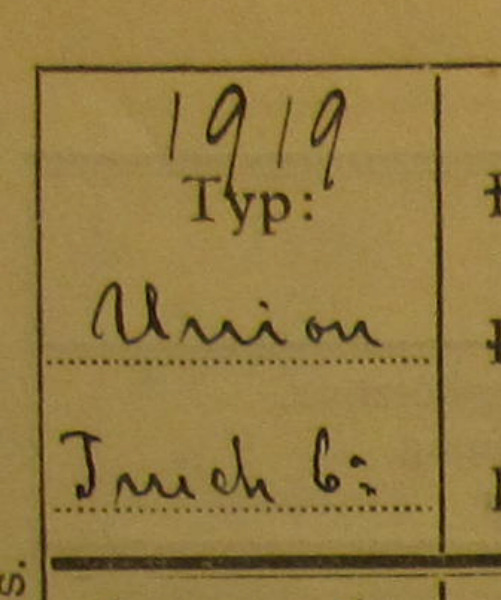 1919
Typ:
Union
Truck Co:
s.